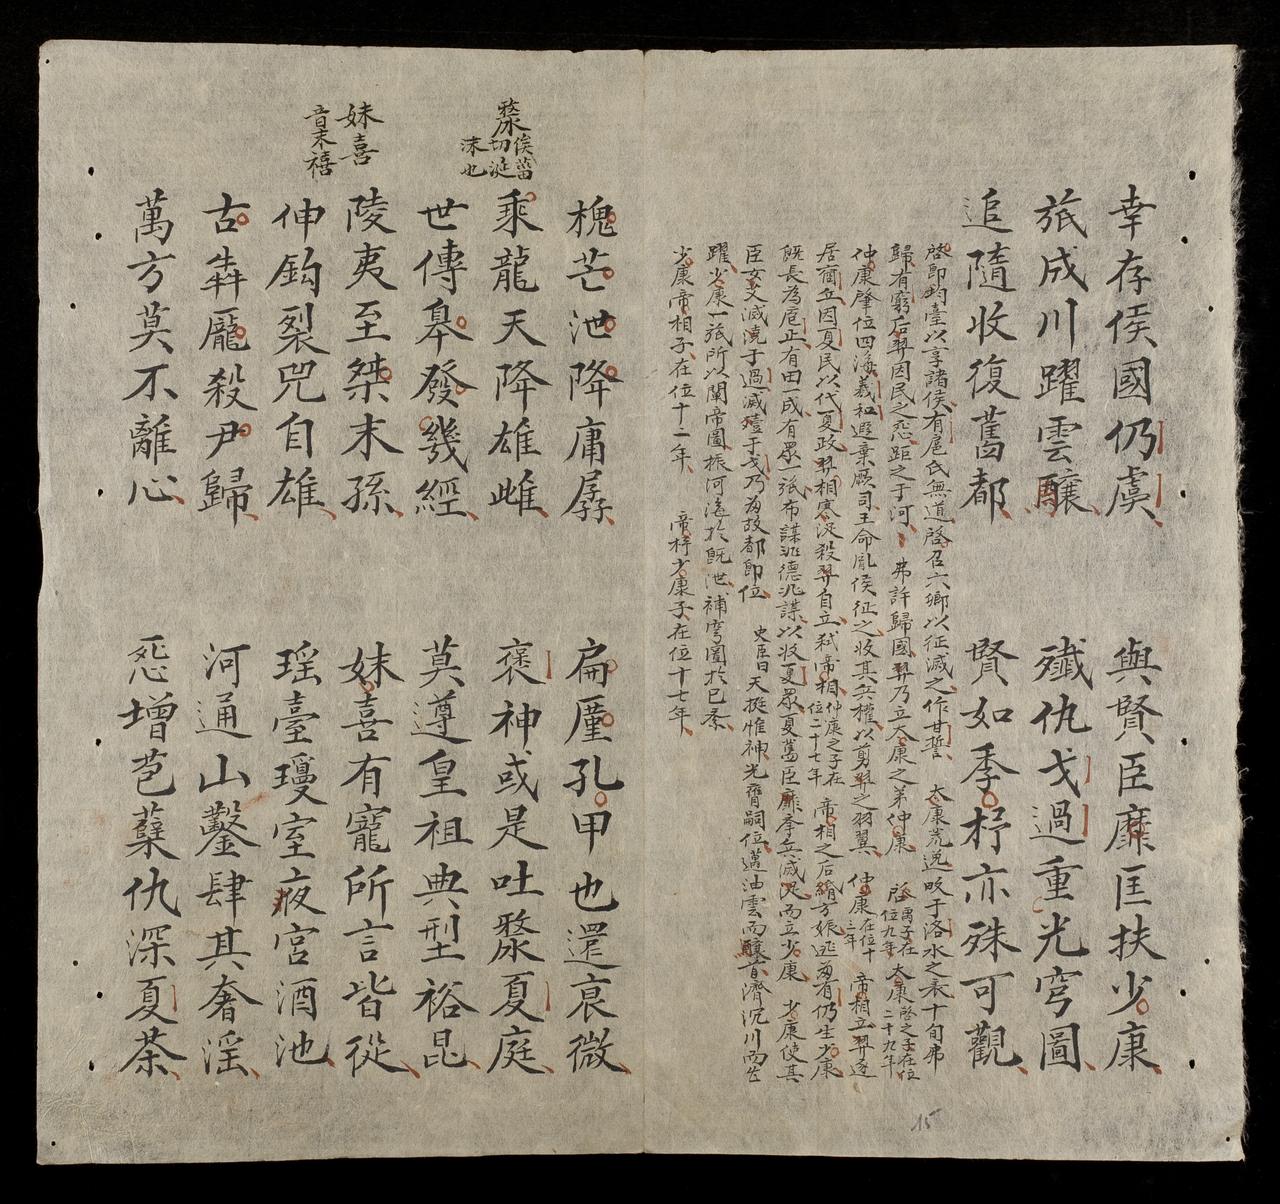 幸存侯國仍虞
與賢臣靡匡扶少康
旅成川躍雲釀
殲仇戈過重光穹圖
追隨收復舊都
賢如季杼亦殊可觀
啓即均臺以享諸侯有扈氏無道啓召六鄉以征滅之作甘誓 太康荒逸畋于洛水之表十旬弗
歸有窮后羿因民之怨距之于河 弗許歸國羿乃立太康之弟仲康 啓禹子在位九年 太康啓之子在位二十九年
仲康肇位四海羲和遐棄厥司王命胤侯征之收其兵權以剪羿之羽翼 仲康在位十三年 帝相立羿逐
居商丘因夏民以代夏政羿相寒浞殺羿自立弒帝相 仲康之子在位二十七年 帝相之后緡方娠逃歸有仍生少康
既長為庖正有田一成有眾一旅布謀兆德兆謀以收夏眾夏舊臣靡奉兵滅浞而立少康 少康使其
臣女艾滅澆于過滅豷于戈乃為故都即位 史臣曰天挺惟神光膺嗣位邁油雲而釀首濟沉川而
躍少康一旅所以闡帝圖振河洛於既泄補穹圖於已紊
少康帝相子在位十二年 帝杼少康子在位十七年
槐芒泄降庸孱
扁厪孔甲也還衰微
漦俟菑切涎沫也
乘龍天降雄雌
褒神或是吐漦夏庭
世傳皋發幾經
莫遵皇祖典型裕昆
妹喜音末禧
陵夷至桀末孫
妹喜有寵所言皆從
伸鈎裂兕自雄
瑶臺瓊室夜宮酒池
古犇龎殺尹歸
河通山鑿肆其奢淫
萬方莫不離心
怨增苞蘖仇深夏荼
15